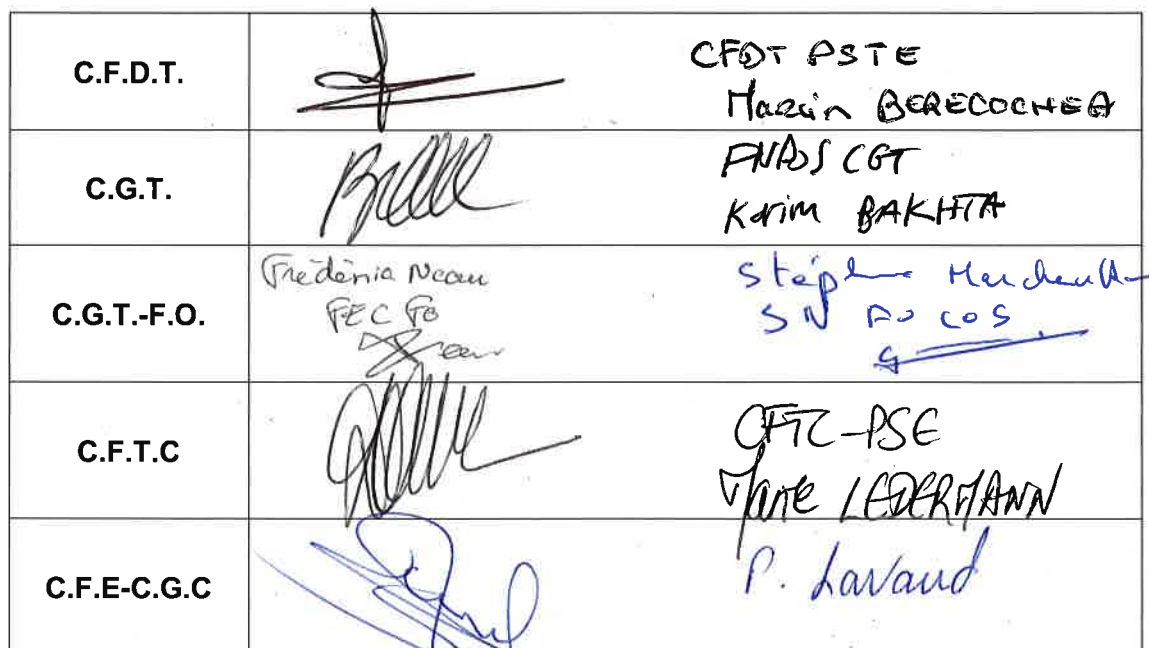 C.F.D.T.
CFDT PSTE
Martin BERECOCHEA
C.G.T.
FNPOS CGT
Karim BAKHTA
C.G.T.-F.O.
Frédéric Neau
FEC FO
Neau
Stéphane
SN FO COS
C.F.T.C
CFTC-PSE
LEDERMANN
C.F.E-C.G.C
P. Lavaud